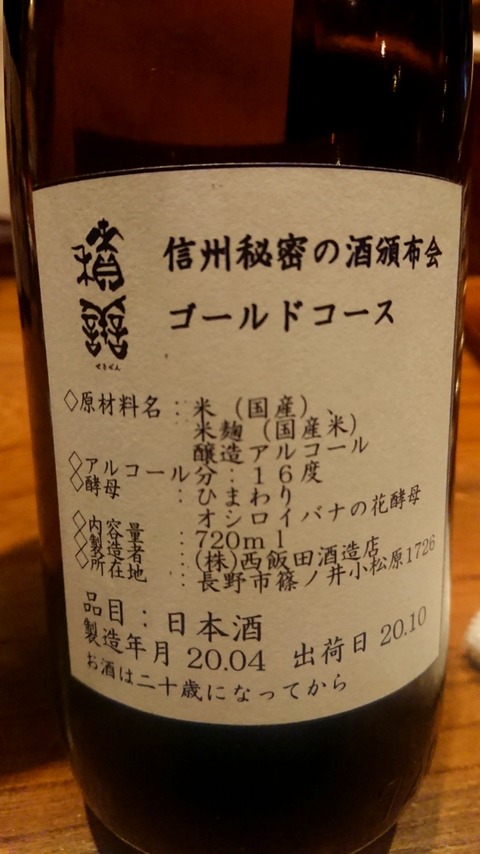 積善
せきぜん
信州秘密の酒頒布会
ゴールドコース
◇原材料名：米（国産）、
米麹（国産米）
醸造アルコール
◇アルコール分：１６度
◇酵母　　　：ひまわり
オシロイバナの花酵母
◇内容量　：720ml
◇製造者　：(株)西飯田酒造店
◇所在地　：長野市篠ノ井小松原1726
品目：日本酒
製造年月 20.04　出荷日 20.10
お酒は二十歳になってから